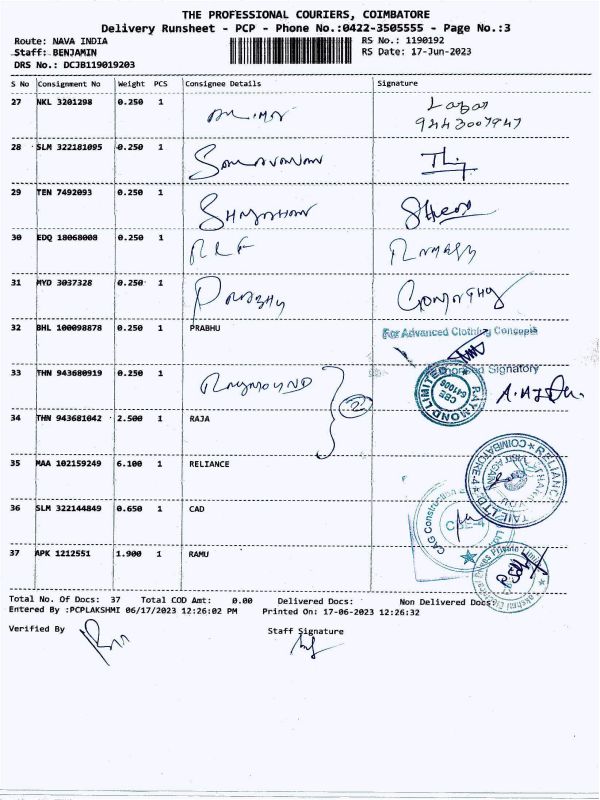 THE PROFESSIONAL COURIERS, COIMBATORE
Delivery Runsheet - PCP - Phone No.:0422-3505555 - Page No.:3
Route: NAVA INDIA RS No.: 1190192
Staff: BENJAMIN RS Date: 17-Jun-2023
DRS No.: DCJB119019203
S No Consignment No Weight PCS Consignee Details Signature
27 NKL 3201298 0.250 1
9443007947
28 SLM 322181095 0.250 1 Saravanan
29 TEN 7492093 0.250 1
30 EDQ 18068008 0.250 1 Ramesh
31 MYD 3037328 0.250 1 Prabhu Gomathy
32 BHL 100098878 0.250 1 PRABHU For Advanced Clothing Concepts
Authorised Signatory
33 THN 943680919 0.250 1 RAYMOND RAYMOND LIMITED CBE 641006
2
34 THN 943681042 2.500 1 RAJA
35 MAA 102159249 6.100 1 RELIANCE
36 SLM 322144849 0.650 1 CAD
37 APK 1212551 1.900 1 RAMU
Total No. Of Docs: 37 Total COD Amt: 0.00 Delivered Docs: Non Delivered Docs:
Entered By :PCPLAKSHMI 06/17/2023 12:26:02 PM Printed On: 17-06-2023 12:26:32
Verified By Staff Signature